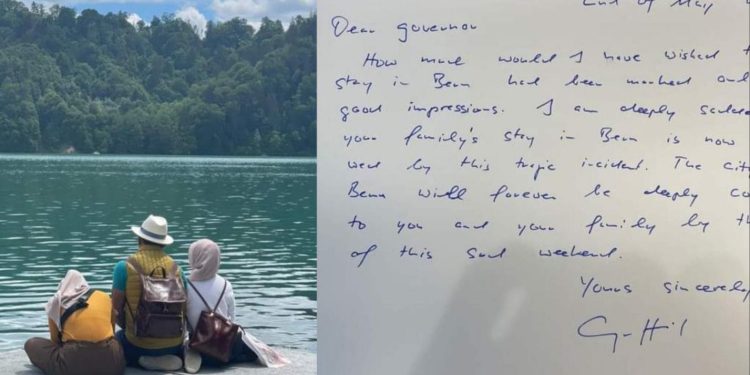 2nd of May
Dear governor
How much would I have wished
stay in Bern had been marked onl
good impressions. I am deeply sadde
your family's stay in Bern is now
by this tragic incident. The city
Bern will forever be deeply co
to you and your family by th
of this sad weekend.
Yours sincerely